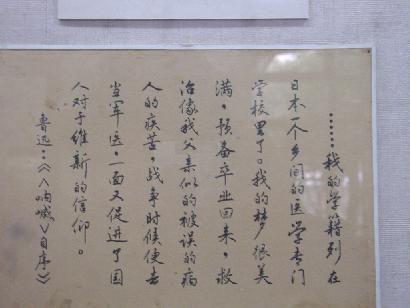 ……我的学籍列在
日本一个乡间的医学专门
学校里了。我的梦很美
满，预备卒业回来，救
治像我父亲似的被误的病
人的疾苦，战争时候便去
当军医，一面又促进了国
人对于维新的信仰。
鲁迅：《〈呐喊〉自序》